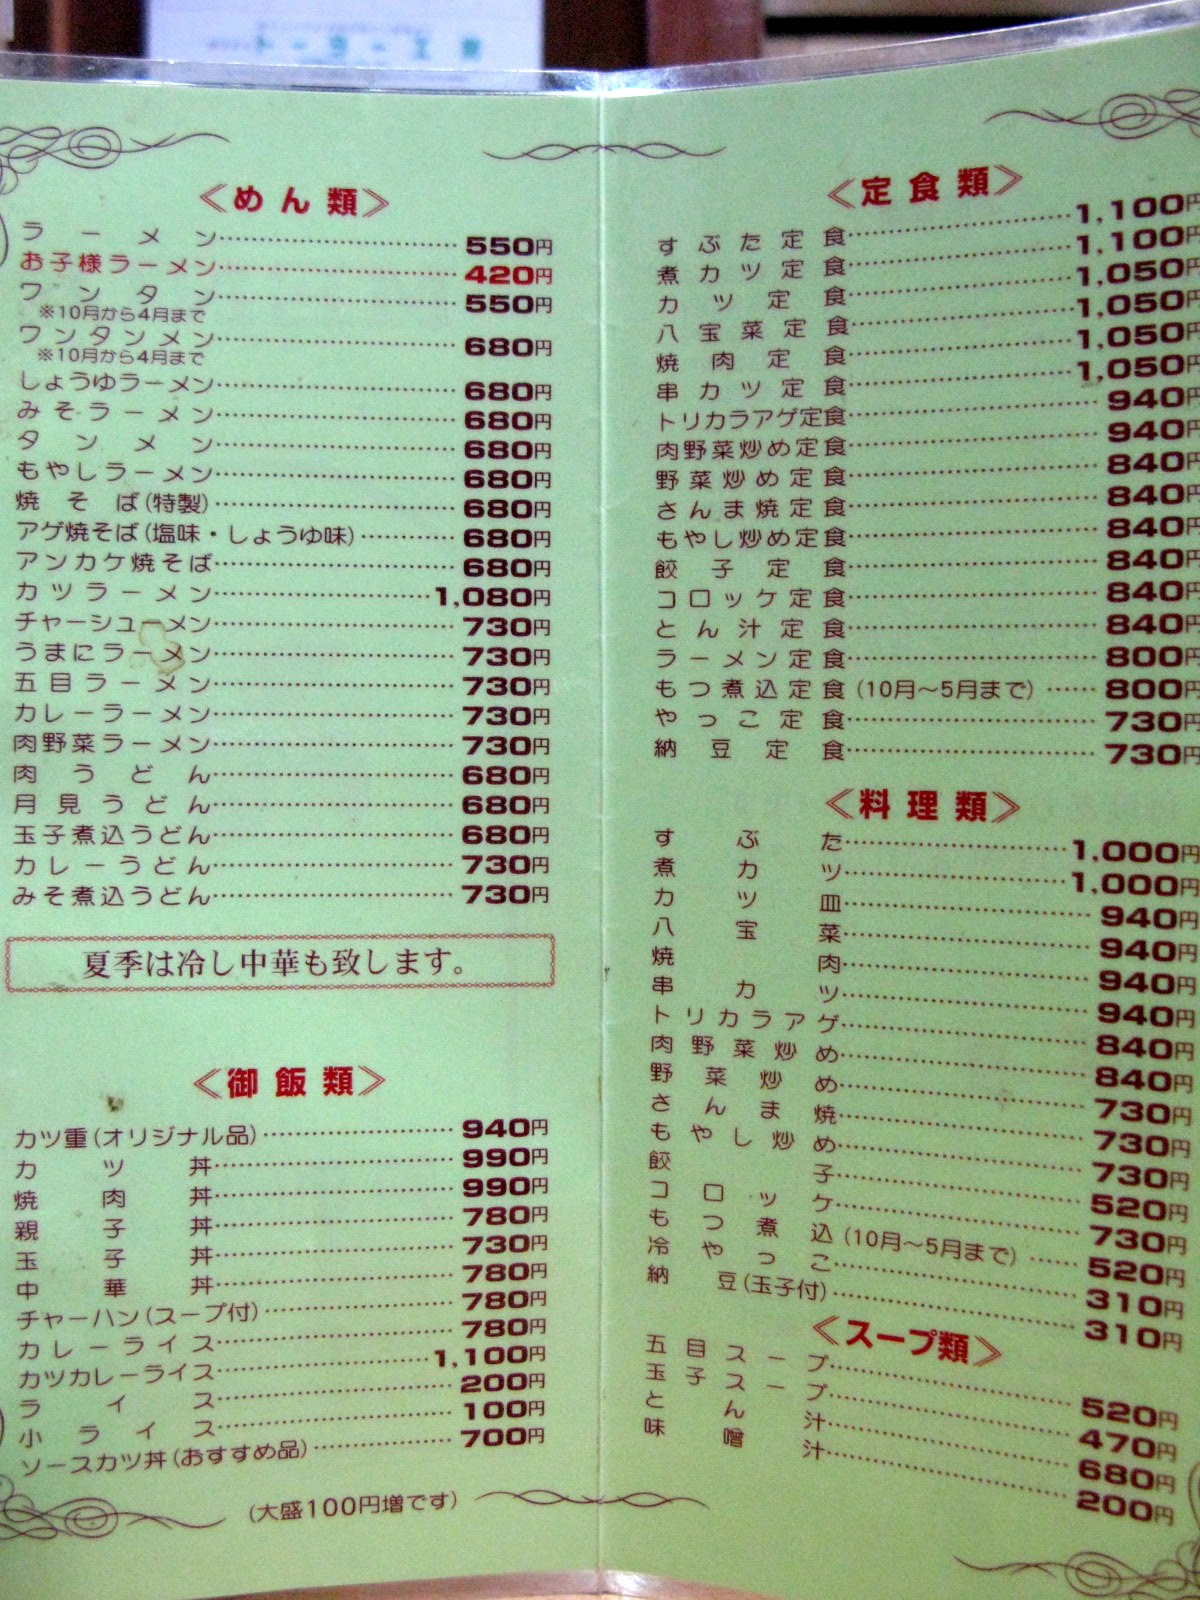 <めん類>
ラーメン 550円
お子様ラーメン 420円
ワンタン 550円
※10月から4月まで
ワンタンメン 680円
※10月から4月まで
しょうゆラーメン 680円
みそラーメン 680円
タンメン 680円
もやしラーメン 680円
焼そば(特製) 680円
アゲ焼そば(塩味・しょうゆ味) 680円
アンカケ焼そば 680円
カツラーメン 1,080円
チャーシューメン 730円
うまにラーメン 730円
五目ラーメン 730円
カレーラーメン 730円
肉野菜ラーメン 730円
肉うどん 680円
月見うどん 680円
玉子煮込うどん 680円
カレーうどん 730円
みそ煮込うどん 730円
夏季は冷し中華も致します。
<御飯類>
カツ重(オリジナル品) 940円
カツ丼 990円
焼肉丼 990円
親子丼 780円
玉子丼 730円
中華丼 780円
チャーハン(スープ付) 780円
カレーライス 780円
カツカレーライス 1,100円
ライス 200円
小ライス 100円
ソースカツ丼(おすすめ品) 700円
(大盛100円増です)
<定食類>
すぶた定食 1,100円
煮カツ定食 1,100円
カツ定食 1,050円
八宝菜定食 1,050円
焼肉定食 1,050円
串カツ定食 1,050円
トリカラアゲ定食 940円
肉野菜炒め定食 940円
野菜炒め定食 840円
さんま焼定食 840円
もやし炒め定食 840円
餃子定食 840円
コロッケ定食 840円
とん汁定食 840円
ラーメン定食 800円
もつ煮込定食(10月〜5月まで) 800円
やっこ定食 730円
納豆定食 730円
<料理類>
すぶた 1,000円
煮カツ 1,000円
カツ皿 940円
八宝菜 940円
焼肉 940円
串カツ 940円
トリカラアゲ 840円
肉野菜炒め 840円
野菜炒め 730円
さんま焼 730円
もやし炒め 730円
餃子 520円
コロッケ 730円
もつ煮込(10月〜5月まで) 520円
冷やっこ 310円
納豆(玉子付) 310円
<スープ類>
五目スープ 520円
玉子スープ 470円
とん汁 680円
味噌汁 200円